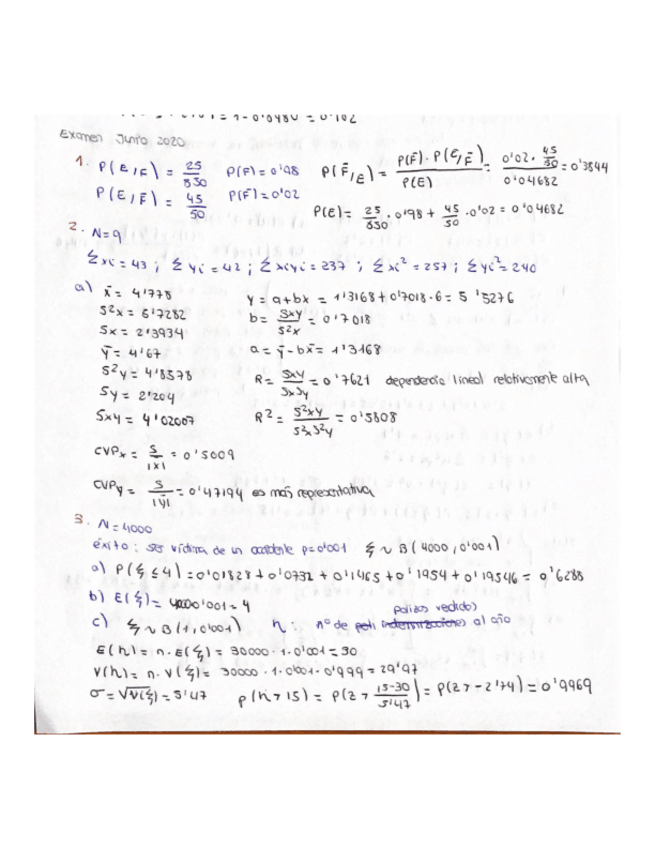 = 1 - 0'0480 = 0'102
Examen Junio 2020
1. P(E/F) = 25/850 P(F) = 0'98 P(F̄/E) = P(F̄)·P(E/F̄) / P(E) = 0'02 · 45/50 / 0'04682 = 0'3844
P(E/F̄) = 45/50 P(F̄) = 0'02
P(E) = 25/850 · 0'98 + 45/50 · 0'02 = 0'04682
2. N=9
Σxi = 43 ; Σyi = 42 ; Σxiyi = 237 ; Σxi² = 257 ; Σyi² = 240
a) x̄ = 4'778 y = a+bx = 1'3168 + 0'7018 · 6 = 5'5276
S²x = 5'7282 b = Sxy/S²x = 0'7018
Sx = 2'3934
ȳ = 4'67 a = ȳ - bx̄ = 1'3168
S²y = 4'8578 R = Sxy/SxSy = 0'7621 dependencia lineal relativamente alta
Sy = 2'204
Sxy = 4'02007 R² = S²xy/S²xS²y = 0'5808
CVPx = S/|x̄| = 0'5009
CVPy = S/|ȳ| = 0'47194 es más representativa
3. N=4000
éxito: ser víctima de un accidente p=0'001 ξ ~ B(4000, 0'001)
a) P(ξ ≤ 4) = 0'01828 + 0'0732 + 0'1465 + 0'1954 + 0'19546 = 0'6288
b) E(ξ) = 4000·0'001 = 4
polizas vedidos
c) ξ ~ B(1, 0'001) η: nº de poli indemnizaciones al año
E(η) = n·E(ξ) = 30000 · 1 · 0'001 = 30
V(η) = n·V(ξ) = 30000 · 1 · 0'001 · 0'999 = 29'97
σ = √V(ξ) = 5'47 P(η > 15) = P(Z > 15-30/5'47) = P(Z > -2'74) = 0'9969